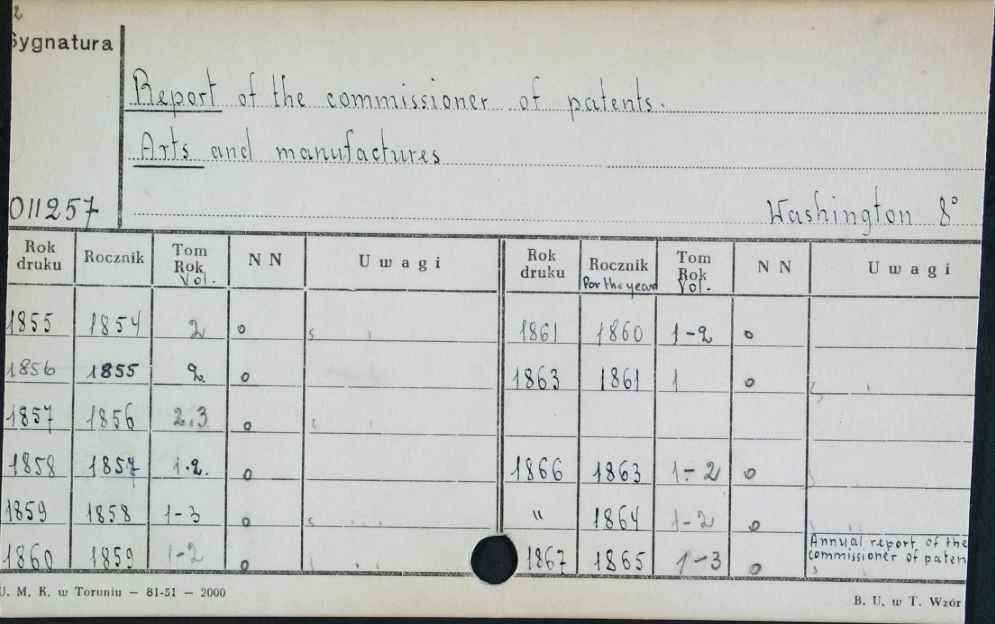 2
Sygnatura
Report of the commissioner of patents.
Arts and manufactures
011257
Washington 8°
Rok druku Rocznik Tom Rok Vol. N N Uwagi Rok druku Rocznik For the year Tom Rok Vol. N N Uwagi
1855 1854 2 o 1861 1860 1-2 o
1856 1855 2. o 1863 1861 1 o
1857 1856 2.3 o
1858 1857 1.2. o 1866 1863 1-2 o
1859 1858 1-3 o " 1864 1-2 o
1860 1859 1-2 o 1867 1865 1-3 o Annual report of the commissioner of paten
U. M. K. w Toruniu — 81-51 — 2000
B. U. w T. Wzór